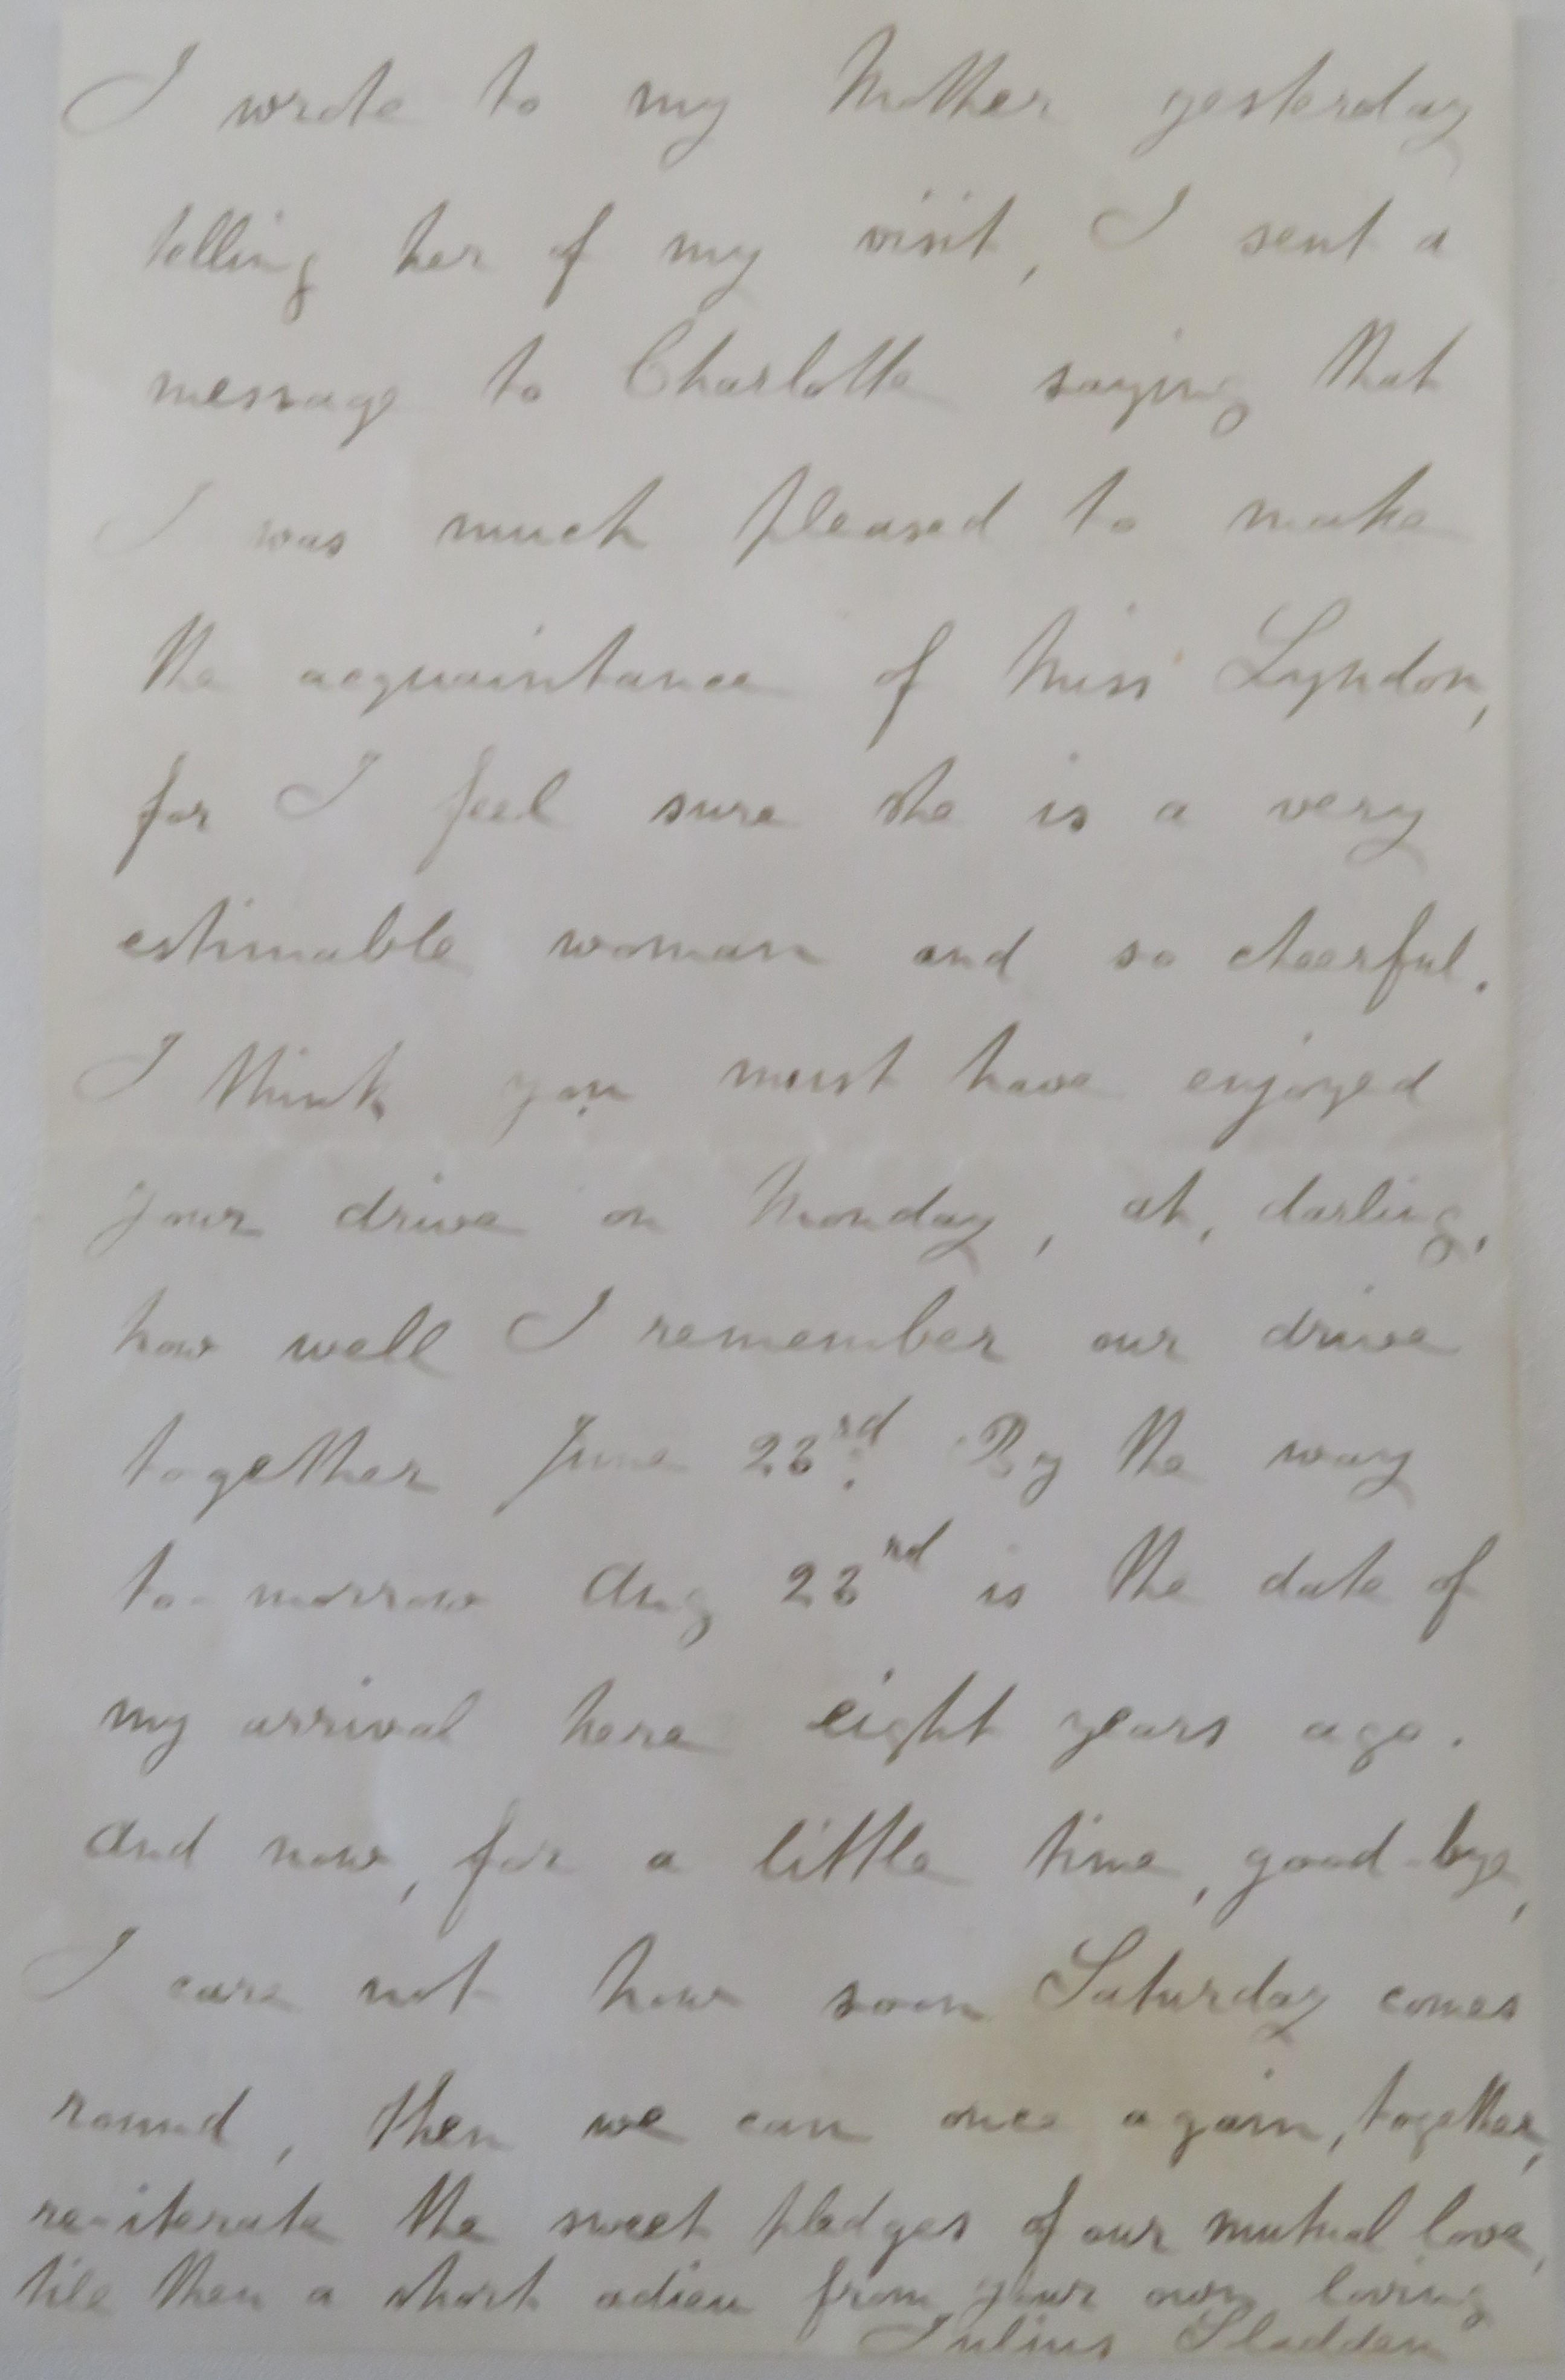 I wrote to my Mother yesterday
telling her of my visit, I sent a
message to Charlotte saying that
I was much pleased to make
the acquaintance of Miss Lyndon,
for I feel sure she is a very
estimable woman and so cheerful.
I think you must have enjoyed
your drive on Monday, ah, darling,
how well I remember our drive
together June 23rd. By the way
to-morrow Aug 23rd is the date of
my arrival here eight years ago.
And now, for a little time, good-bye,
I care not how soon Saturday comes
round, then we can once again, together,
re-iterate the sweet pledges of our mutual love,
till then a short adieu from your own loving
Julius Sladden